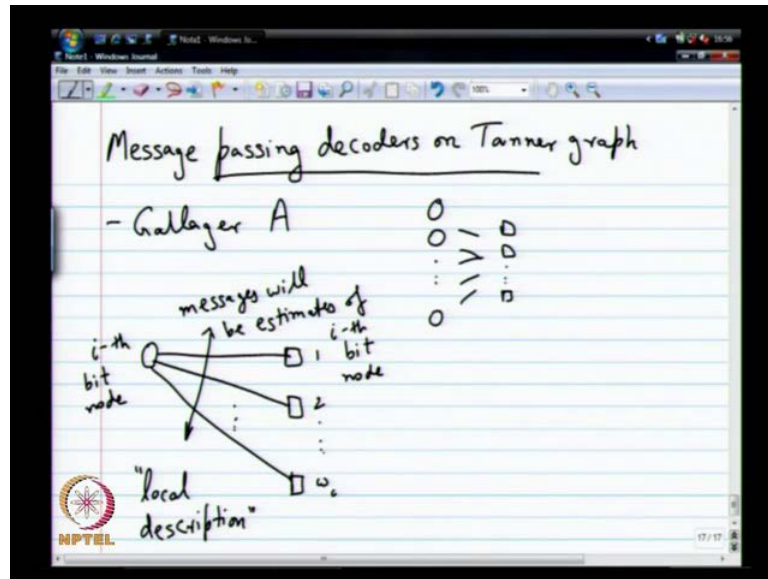 Note1 - Windows Jo...
16:56
Note1 - Windows Journal
File Edit View Insert Actions Tools Help
100%
Message passing decoders on Tanner graph
- Gallager A
messages will
be estimates of
i-th
bit
node
i-th
bit
node
1
2
w_c
"local
description"
NPTEL
17/17